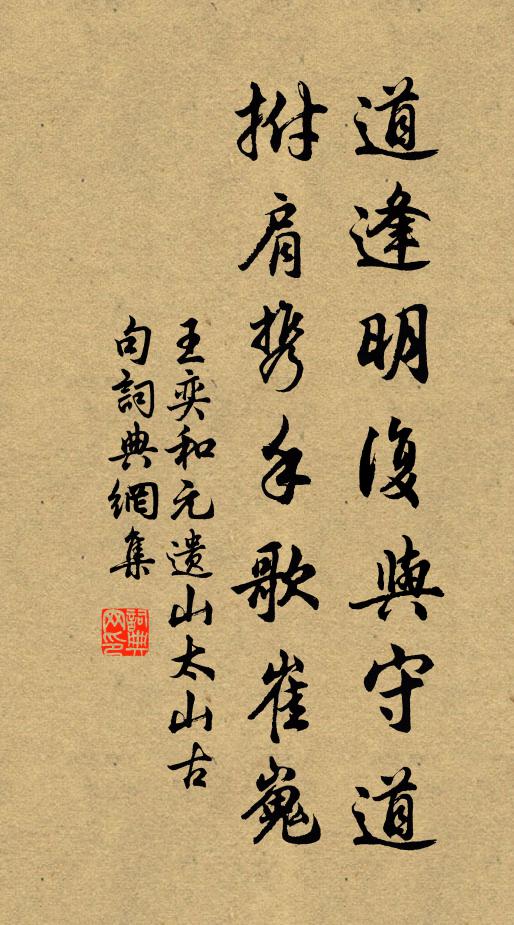 道逢明復與守道
拊肩携手歌崔嵬
王奕和元遺山太山古
句詞典網集
詞典网印